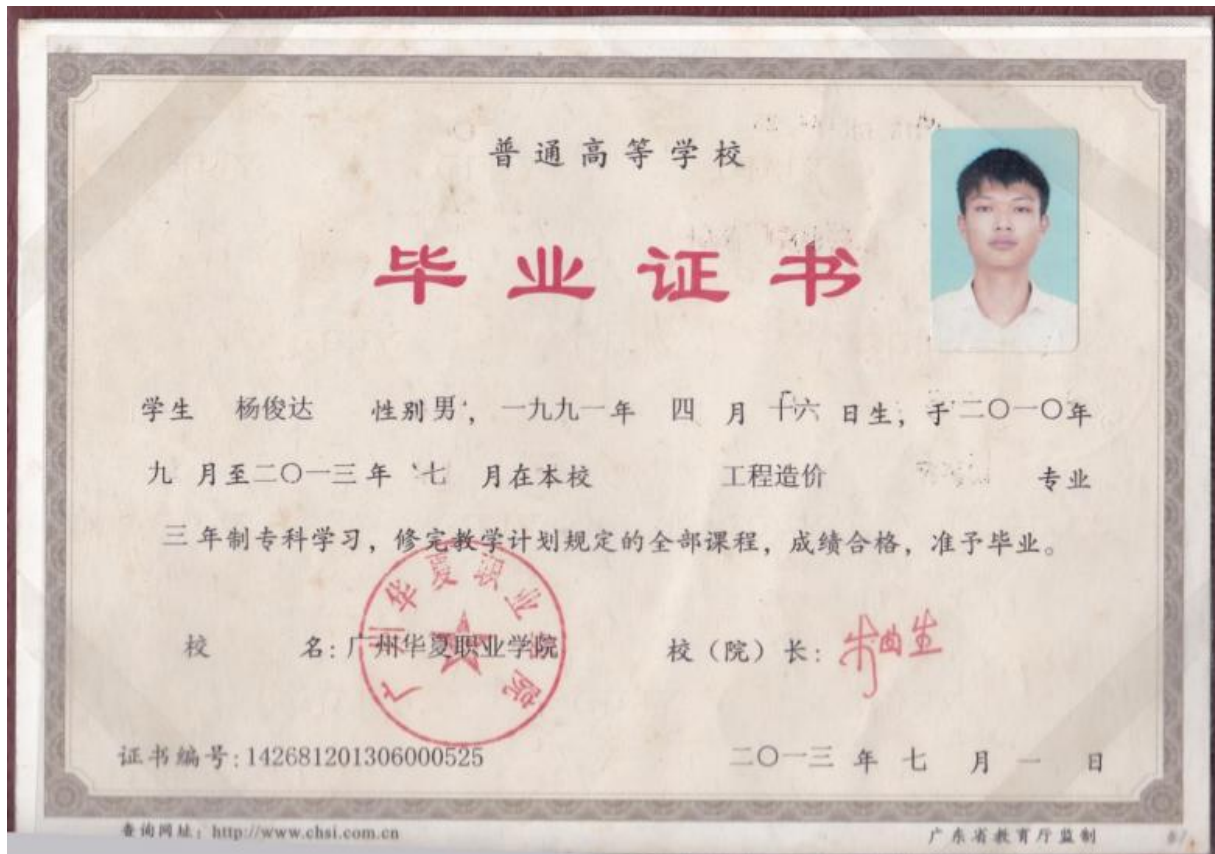 普通高等学校
毕业证书
学生 杨俊达 性别 男, 一九九一年 四 月 十六 日生, 于二〇一〇年
九 月至二〇一三年 七 月在本校 工程造价 专业
三 年制专科学习, 修完教学计划规定的全部课程, 成绩合格, 准予毕业。
广州华夏职业学院
校 名: 广州华夏职业学院 校 (院) 长:
证书编号: 142681201306000525 二〇一三 年 七 月 一 日
查询网址: http://www.chsi.com.cn 广东省教育厅监制